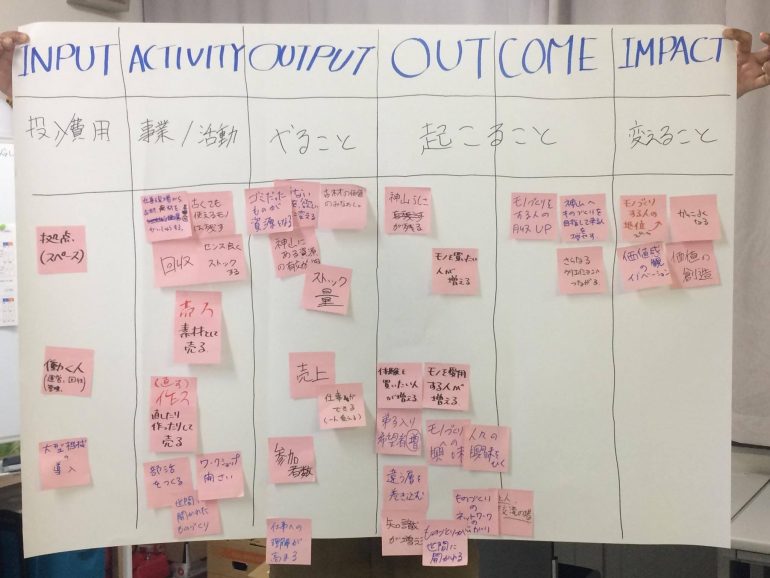 INPUT
ACTIVITY
OUTPUT
OUT
COME
IMPACT
投入費用
事業/活動
やること
起こること
変えること
拠点
(スペース)
働く人
大型機械
の
導入
古くても
使えるモノ
は残す
回収
センス良く
ストック
する
売る
素材として
売る
(直す)
作る
直したり
作ったりして
売る
部活
をつくる
ワークショップ
開さい
世間に
開かれた
ものづくり
ゴミだった
ものが
資源になる
神山に
ある資源
ストック
量
売上
仕事が
できる
参加
者数
仕事への
理解が
高まる
神山らしさ
が残る
モノを買いたい
人が
増える
体験を
買いたい人
が増える
モノを費用
する人が
増える
弟子入り
希望者増
モノづくり
への
興味
人々の
興味をひく
違う層を
巻き込む
知識
が増える
ものづくりの
ネットワークの
世間に
開かれる
モノづくりを
する人の
月収UP
神山へ
ものづくりを
目指して来る人を
増やす
さらなる
つながる
モノづくり
する人の
地位
かっこよく
なる
価値観
の
イノベーション
価値の
創造